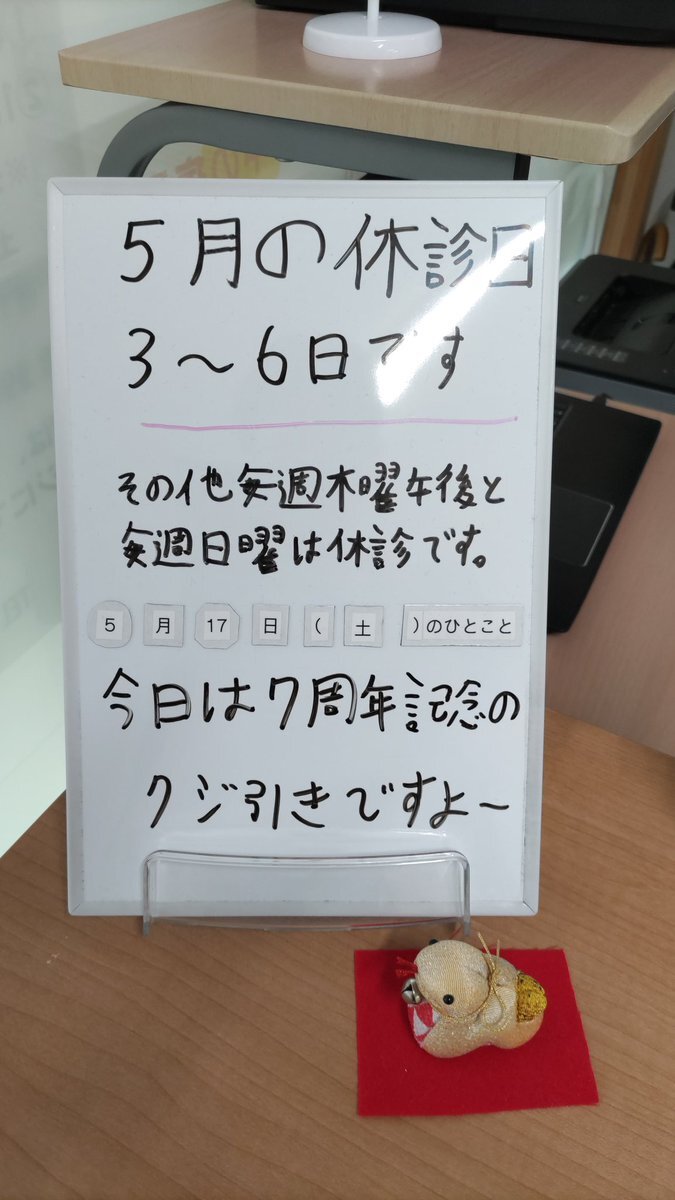 5月の休診日
3〜6日です
その他毎週木曜午後と
毎週日曜は休診です。
5月17日(土)のひとこと
今日は7周年記念の
クジ引きですよ〜